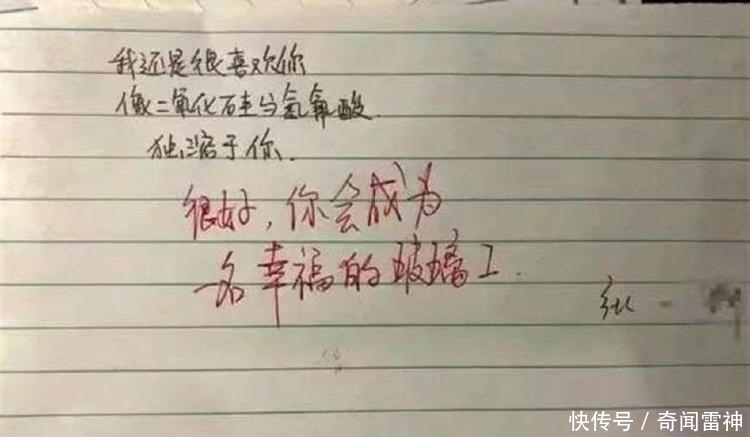 我还是很喜欢你
像二氧化硅与氢氟酸.
独溶于你.
很好,你会成为
一名幸福的玻璃工.
快传号 / 奇闻雷神